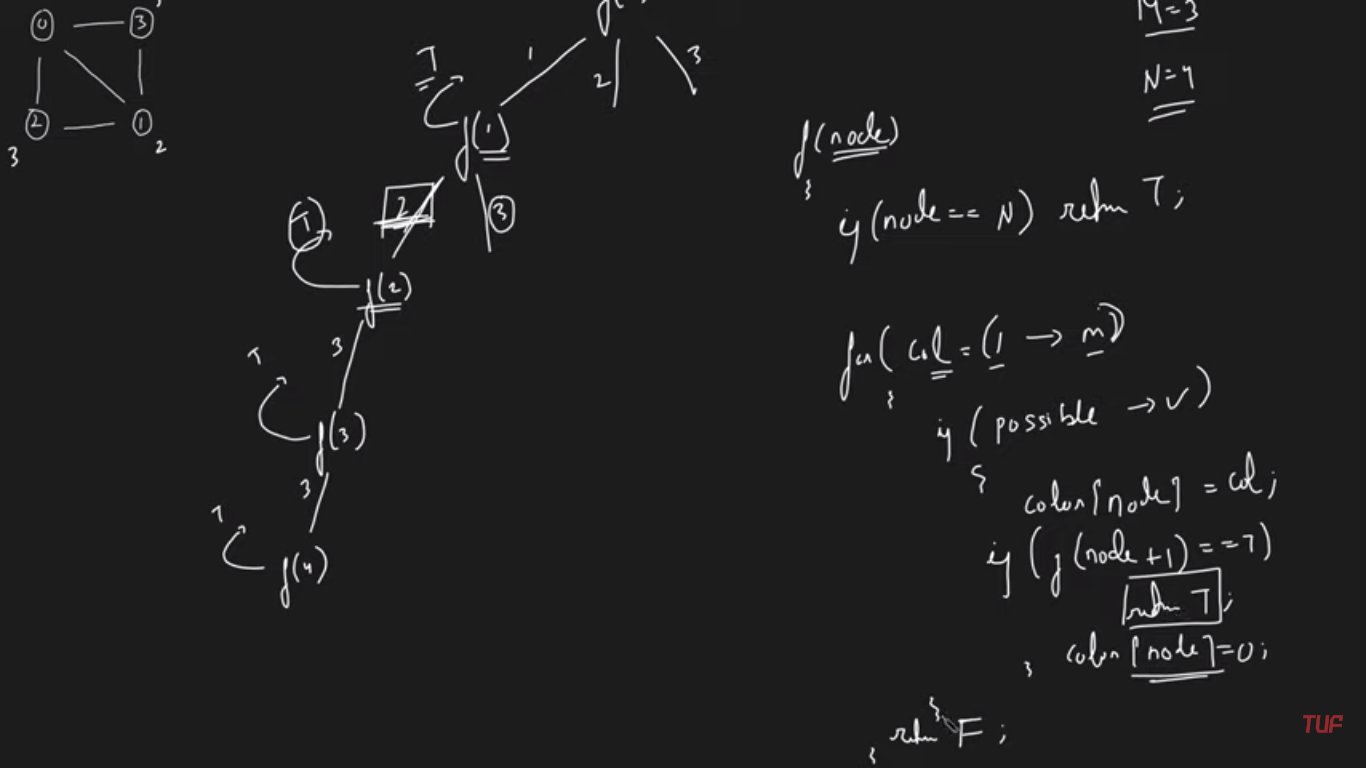 0 3
2 1
3 2
f(
1 2 3
T
f(1)
2 3
T
f(2)
3
T
f(3)
3
T
f(4)
M=3
N=4
f(node)
{
if(node== N) return T;
for( col=(1 → m)
{
if( possible → ✓)
{
color[node] = col;
if (f(node+1)==T)
return T;
} color[node]=0;
}
return F;
}
TUF